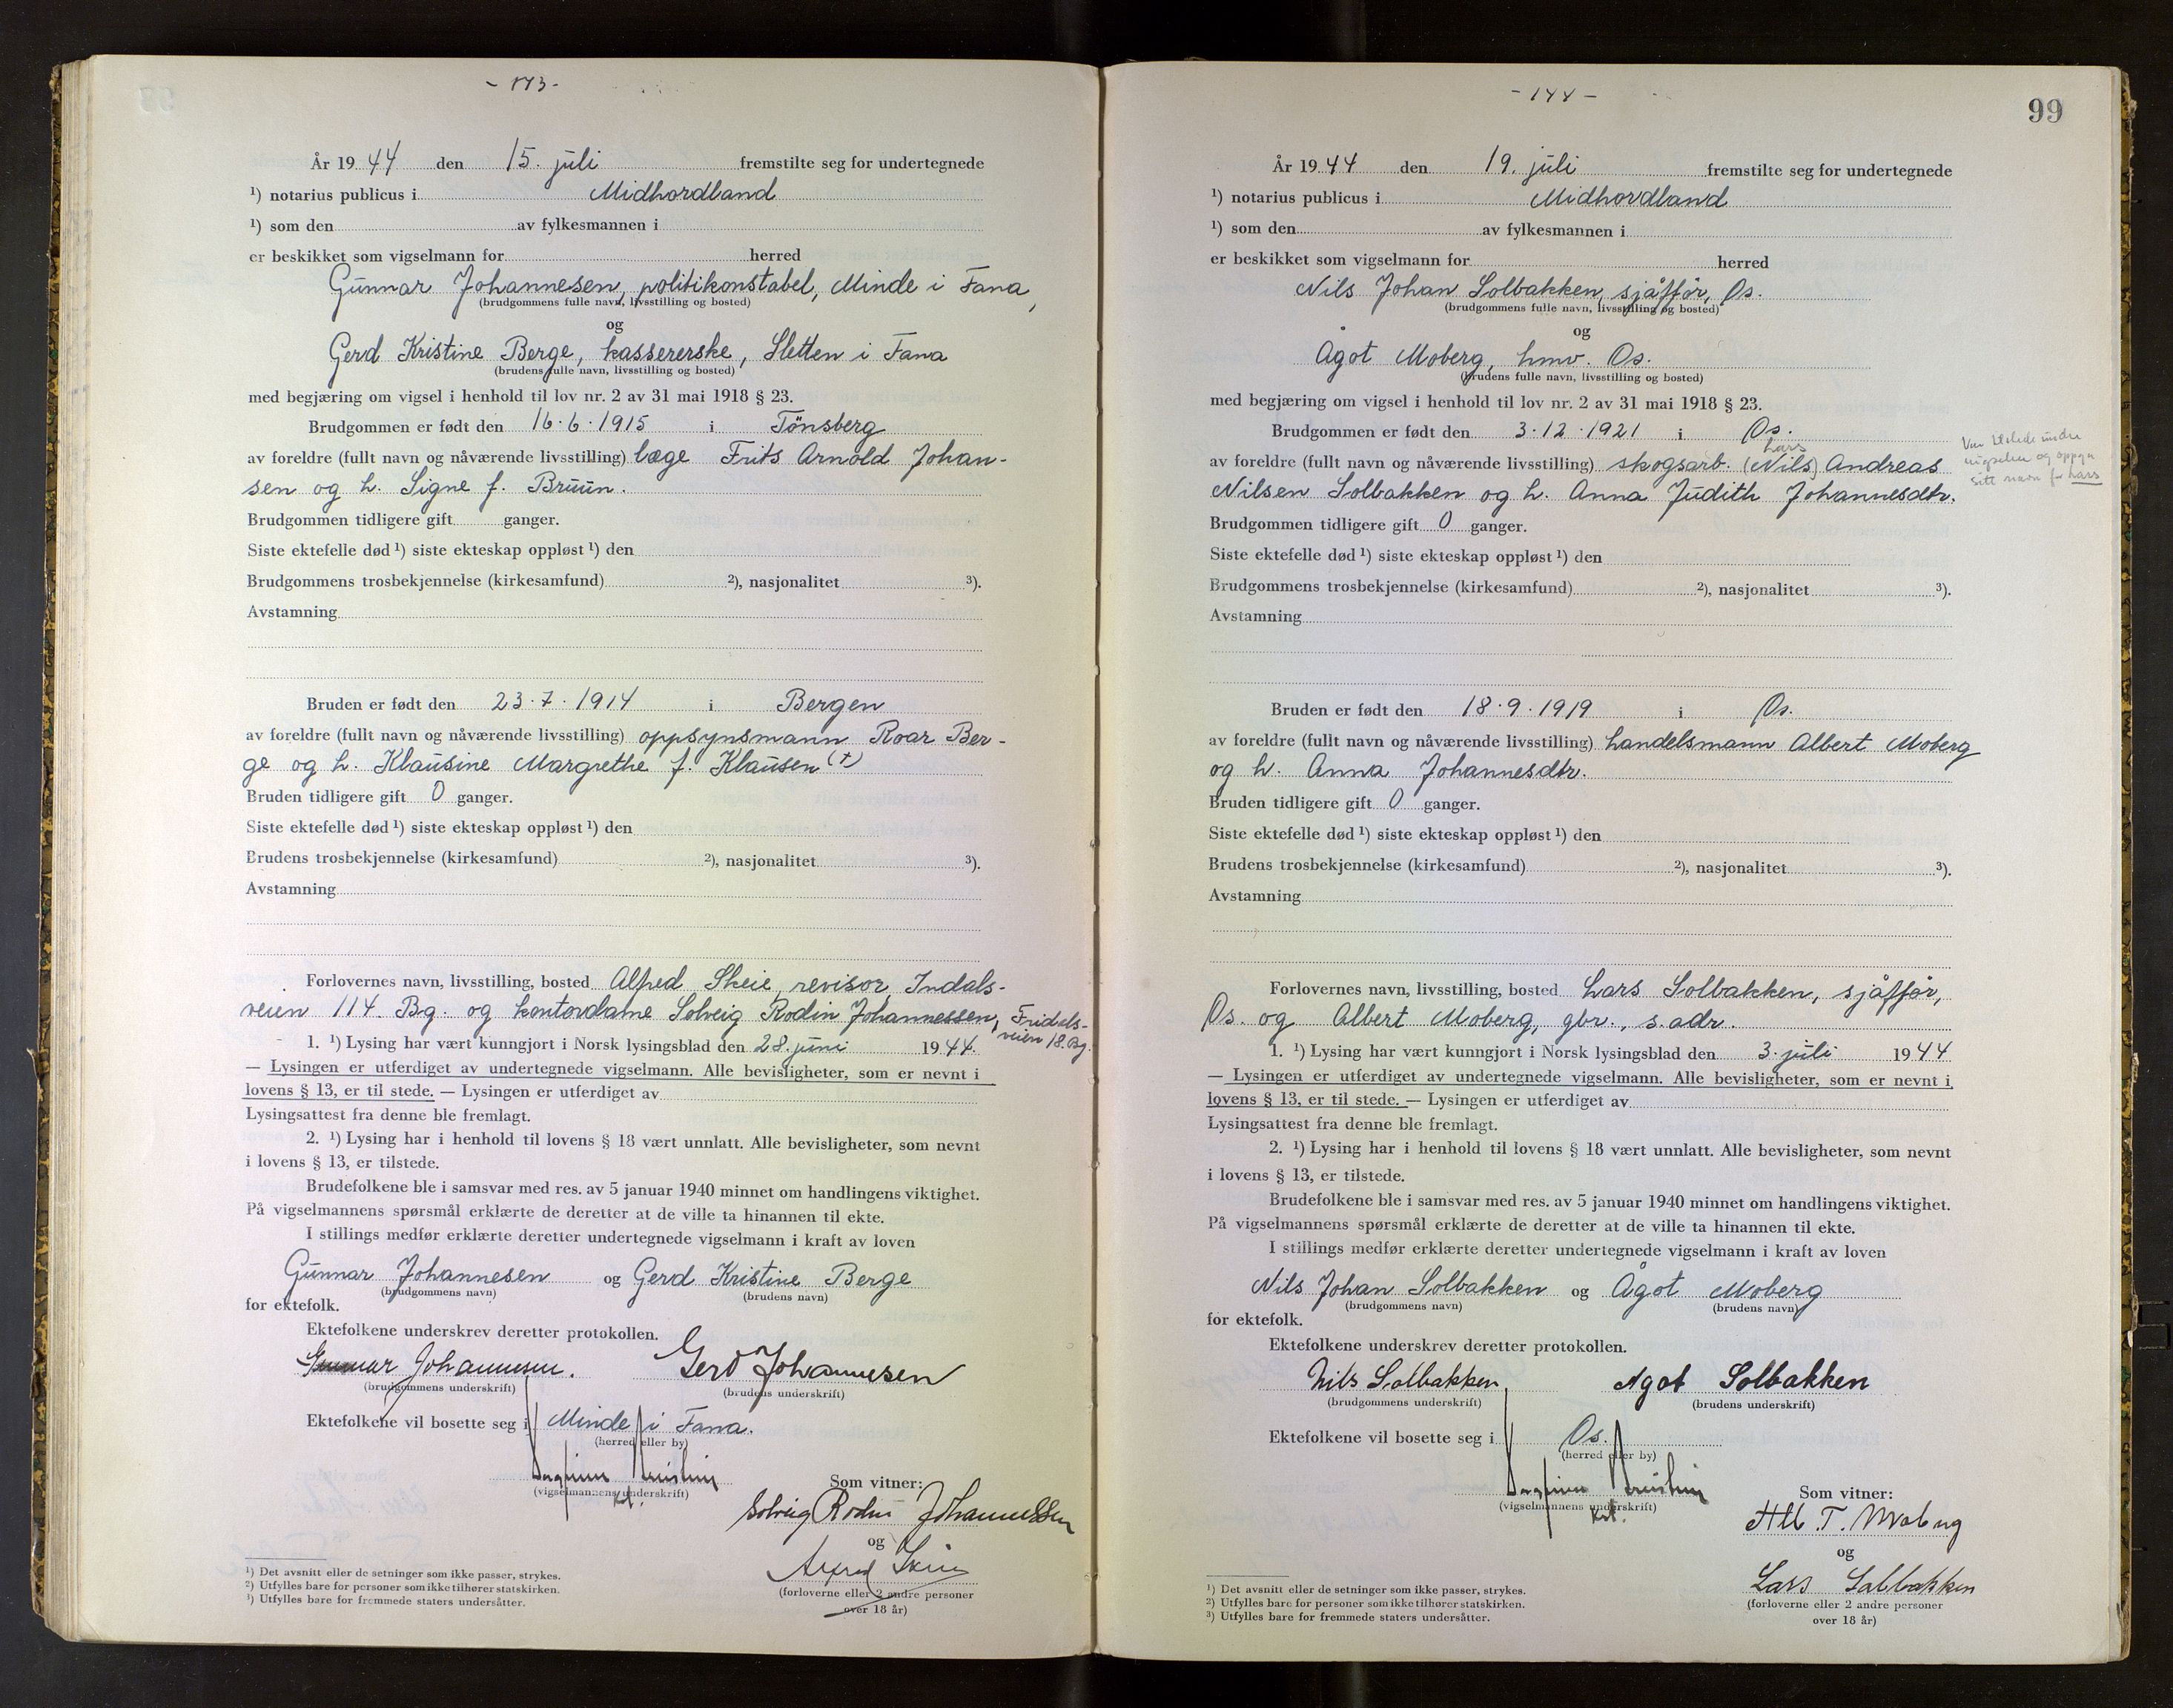 - 143 -
År 1944 den 15. juli fremstilte seg for undertegnede
¹) notarius publicus i Midhordland
¹) som den av fylkesmannen i
er beskikket som vigselmann for herred
Gunnar Johannesen, politikonstabel, Minde i Fana,
(brudgommens fulle navn, livsstilling og bosted)
og
Gerd Kristine Berge, kassererske, Sletten i Fana
(brudens fulle navn, livsstilling og bosted)
med begjæring om vigsel i henhold til lov nr. 2 av 31 mai 1918 § 23.
Brudgommen er født den 16·6·1915 i Tönsberg
av foreldre (fullt navn og nåværende livsstilling) læge Frits Arnold Johan-
sen og h. Signe f. Bruun.
Brudgommen tidligere gift ganger.
Siste ektefelle død ¹) siste ekteskap oppløst ¹) den
Brudgommens trosbekjennelse (kirkesamfund) ²), nasjonalitet ³).
Avstamning
Bruden er født den 23·7·1914 i Bergen
av foreldre (fullt navn og nåværende livsstilling) oppsynsmann Roar Ber-
ge og h. Klausine Margrethe f. Klausen (†)
Bruden tidligere gift 0 ganger.
Siste ektefelle død ¹) siste ekteskap oppløst ¹) den
Brudens trosbekjennelse (kirkesamfund) ²), nasjonalitet ³).
Avstamning
Forlovernes navn, livsstilling, bosted Alfred Skeie, revisor, Indals-
veien 114. Bg. og kontordame Solveig Rodin Johannessen, Fridals-
veien 18. Bg.
1. ¹) Lysing har vært kunngjort i Norsk lysingsblad den 28. juni 1944.
— Lysingen er utferdiget av undertegnede vigselmann. Alle bevisligheter, som er nevnt i
lovens § 13, er til stede. — Lysingen er utferdiget av
Lysingsattest fra denne ble fremlagt.
2. ¹) Lysing har i henhold til lovens § 18 vært unnlatt. Alle bevisligheter, som nevnt
i lovens § 13, er tilstede.
Brudefolkene ble i samsvar med res. av 5 januar 1940 minnet om handlingens viktighet.
På vigselmannens spørsmål erklærte de deretter at de ville ta hinannen til ekte.
I stillings medfør erklærte deretter undertegnede vigselmann i kraft av loven
Gunnar Johannesen og Gerd Kristine Berge
(brudgommens navn) (brudens navn)
for ektefolk.
Ektefolkene underskrev deretter protokollen.
Gunnar Johannesen. Gerd Johannesen
(brudgommens underskrift) (brudens underskrift)
Ektefolkene vil bosette seg i Minde i Fana.
(herred eller by)
(vigselmannens underskrift)
Som vitner:
Solveig Rodin Johannessen
og
Alfred Skeie
(forloverne eller 2 andre personer
over 18 år)
¹) Det avsnitt eller de setninger som ikke passer, strykes.
²) Utfylles bare for personer som ikke tilhører statskirken.
³) Utfylles bare for fremmede staters undersåtter.
- 144 -
99
År 1944 den 19. juli fremstilte seg for undertegnede
¹) notarius publicus i Midhordland
¹) som den av fylkesmannen i
er beskikket som vigselmann for herred
Nils Johan Solbakken, sjåffør, Os.
(brudgommens fulle navn, livsstilling og bosted)
og
Ågot Moberg, hmv. Os.
(brudens fulle navn, livsstilling og bosted)
med begjæring om vigsel i henhold til lov nr. 2 av 31 mai 1918 § 23.
Brudgommen er født den 3·12·1921 i Os.
Lars
av foreldre (fullt navn og nåværende livsstilling) skogsarb. (Nils) Andreas
Nilsen Solbakken og h. Anna Judith Johannesdtr.
Var tilstede under
vigselen og oppga
sitt navn for Lars
Brudgommen tidligere gift 0 ganger.
Siste ektefelle død ¹) siste ekteskap oppløst ¹) den
Brudgommens trosbekjennelse (kirkesamfund) ²), nasjonalitet ³).
Avstamning
Bruden er født den 18·9·1919 i Os.
av foreldre (fullt navn og nåværende livsstilling) handelsmann Albert Moberg
og h. Anna Johannesdtr.
Bruden tidligere gift 0 ganger.
Siste ektefelle død ¹) siste ekteskap oppløst ¹) den
Brudens trosbekjennelse (kirkesamfund) ²), nasjonalitet ³).
Avstamning
Forlovernes navn, livsstilling, bosted Lars Solbakken, sjåffør,
Os. og Albert Moberg, gbr., s. adr.
1. ¹) Lysing har vært kunngjort i Norsk lysingsblad den 3. juli 1944
— Lysingen er utferdiget av undertegnede vigselmann. Alle bevisligheter, som er nevnt i
lovens § 13, er til stede. — Lysingen er utferdiget av
Lysingsattest fra denne ble fremlagt.
2. ¹) Lysing har i henhold til lovens § 18 vært unnlatt. Alle bevisligheter, som nevnt
i lovens § 13, er tilstede.
Brudefolkene ble i samsvar med res. av 5 januar 1940 minnet om handlingens viktighet.
På vigselmannens spørsmål erklærte de deretter at de ville ta hinannen til ekte.
I stillings medfør erklærte deretter undertegnede vigselmann i kraft av loven
Nils Johan Solbakken og Ågot Moberg
(brudgommens navn) (brudens navn)
for ektefolk.
Ektefolkene underskrev deretter protokollen.
Nils Solbakken Agot Solbakken
(brudgommens underskrift) (brudens underskrift)
Ektefolkene vil bosette seg i Os.
(herred eller by)
(vigselmannens underskrift)
Som vitner:
Alb. T. Moberg
og
Lars Solbakken
(forloverne eller 2 andre personer
over 18 år)
¹) Det avsnitt eller de setninger som ikke passer, strykes.
²) Utfylles bare for personer som ikke tilhører statskirken.
³) Utfylles bare for fremmede staters undersåtter.